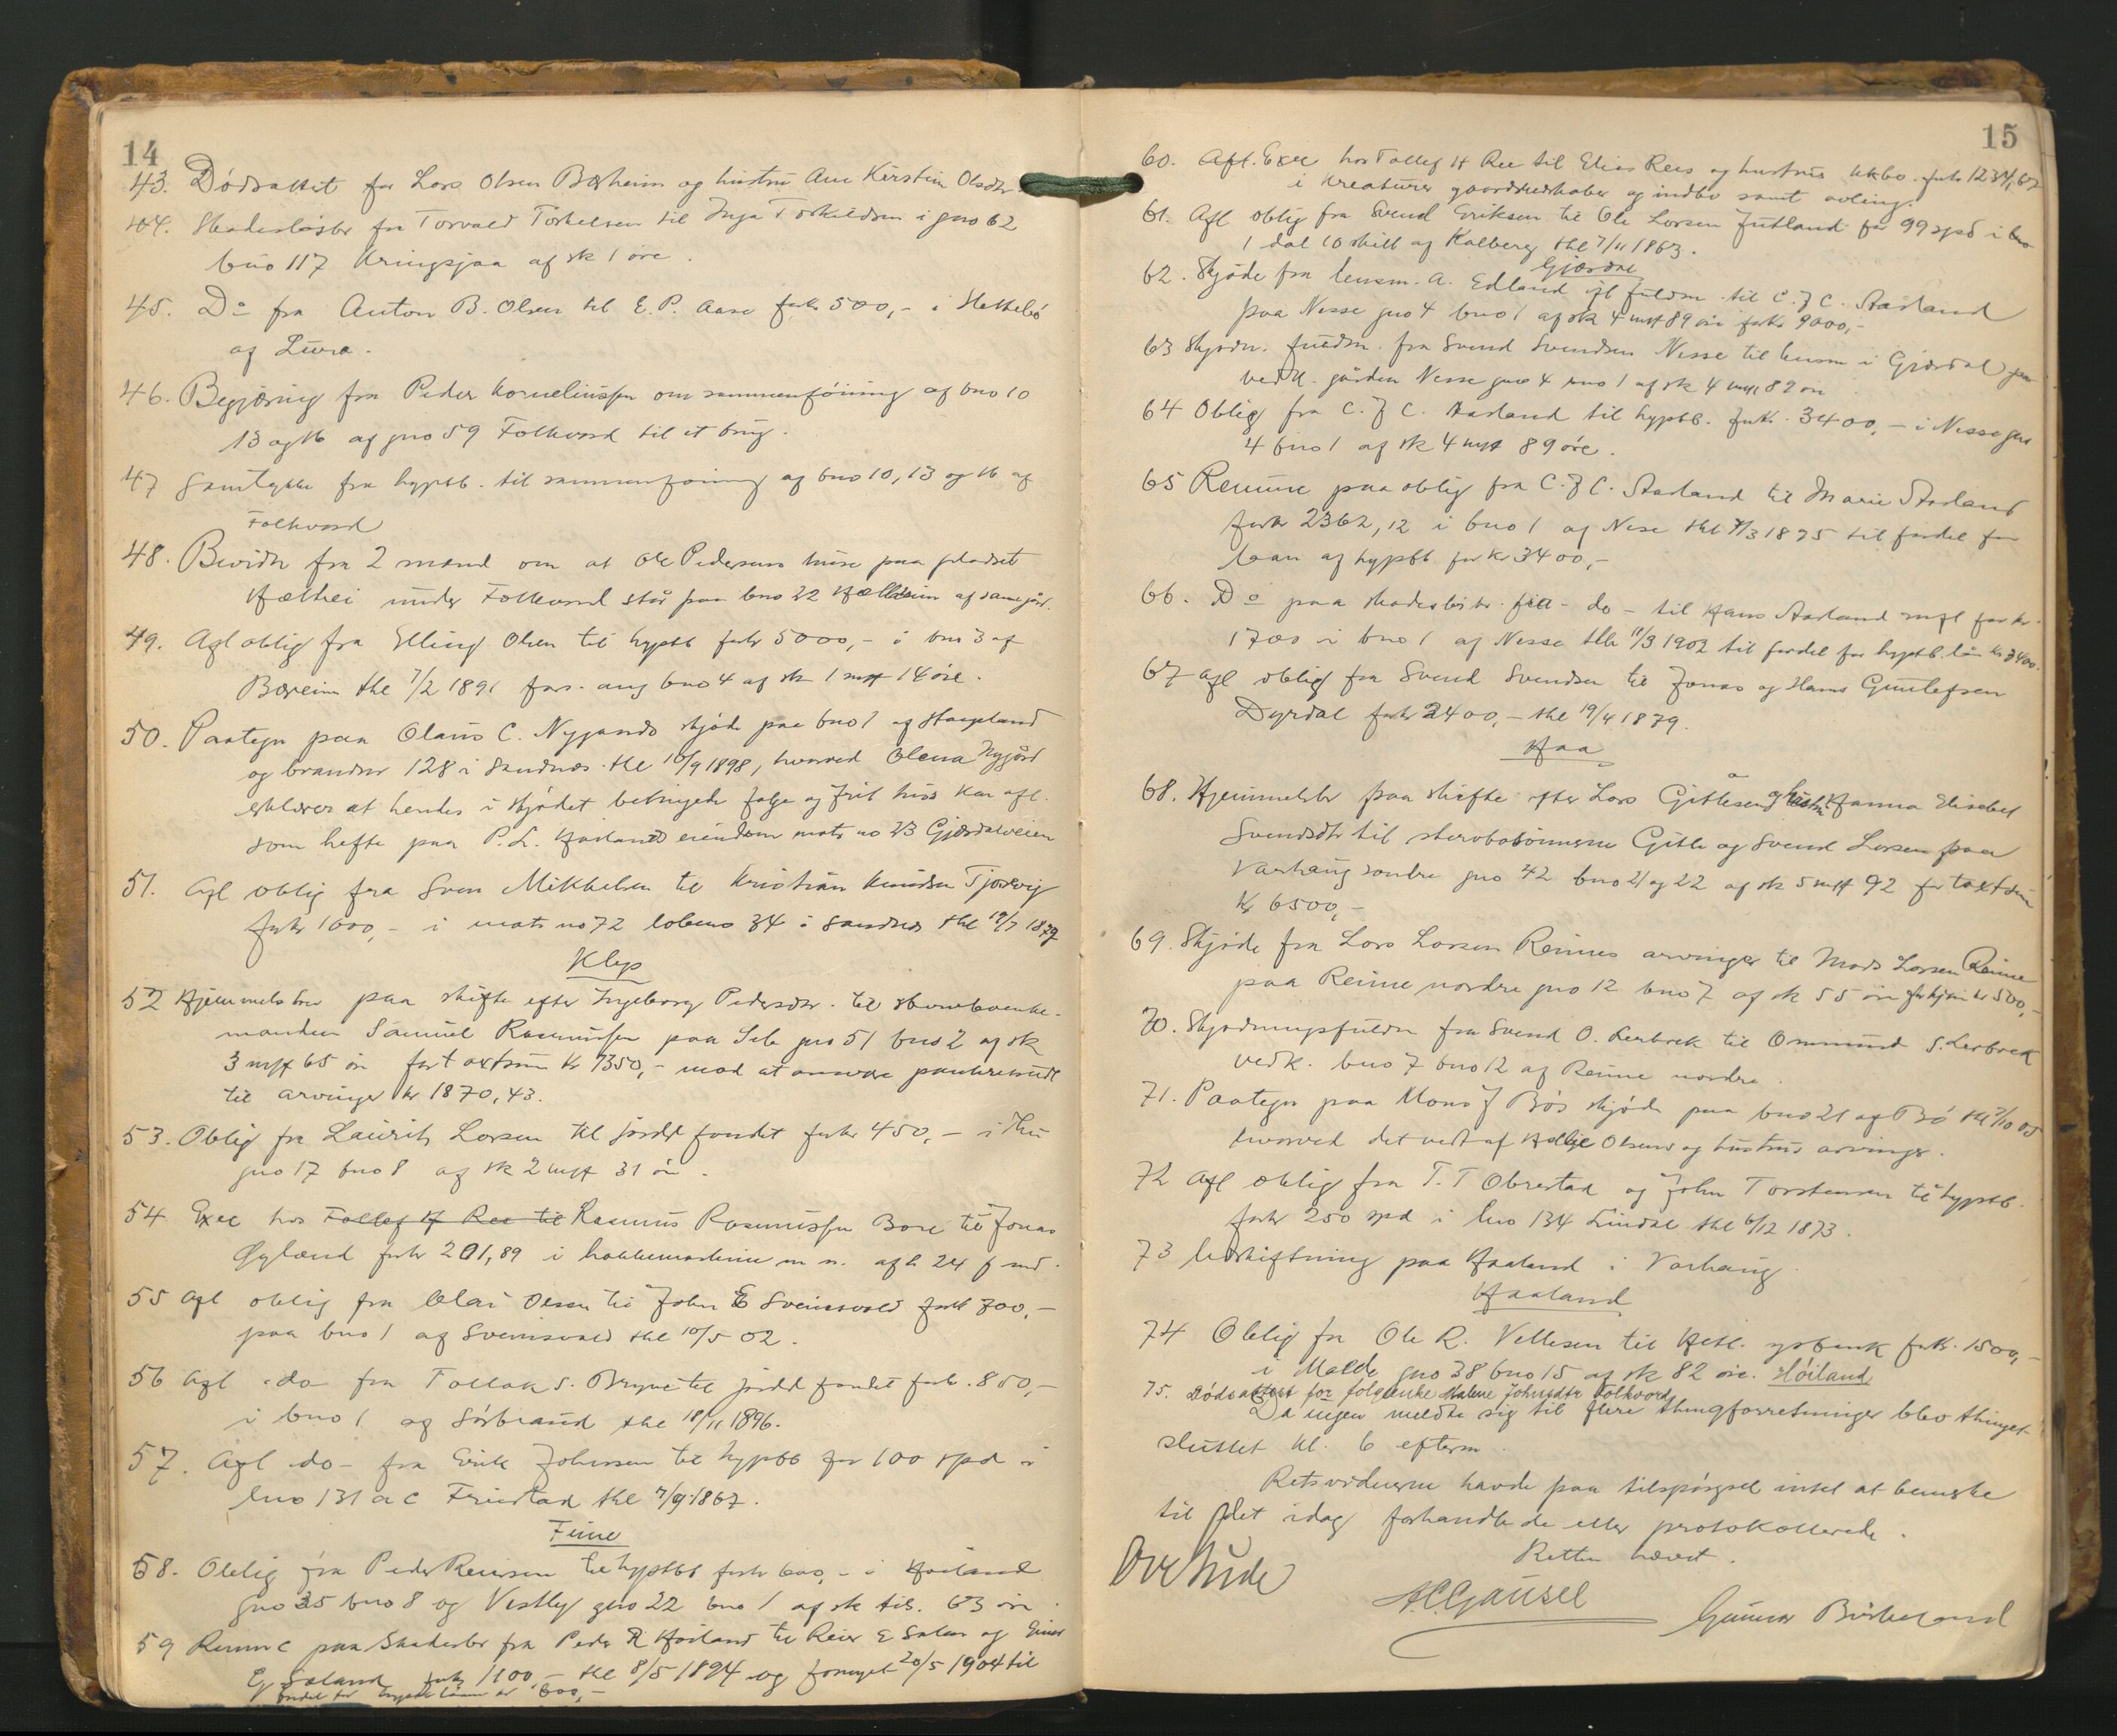 14
43. Dødsattest for Lars Olsen Bærheim og hustru Ane Kirstine Olsdtr
44. Skadesløsbr fra Torvald Torkelsen til Inga Torkildsen i gno 62
bno 117 Kringsjaa af sk 1 øre.
45. Do fra Anton B. Olsen til E. P. Aase forkr 500,- i
af Lura.
46. Begjæring fra Peder Korneliussen om sammenføining af bno 10
13 og 16 af gno 59 Folkvord til et brug.
47 Samtykke fra hyptb. til sammenføining af bno 10, 13 og 16 af
Folkvord
48. Bevidn fra 2 mænd om at Ole Pedersens huse paa pladset
Hælhei under Folkevord står paa bno 22 af samme gård.
49. Afl oblig fra Elling Olsen til hyptb forkr 5000,- i bno 3 af
Bæreim thl 7/2 1891 fors. ang bno 4 af sk 1 mrk 14 øre.
50. Paategn paa Olaus C. Nygaards skjøde paa bno 1 af Haugland
og brandnr 128 i Sandnæs thl 16/9 1898, hvorved Olena Nygård
erklærer at hendes i skjødet betingede følge og frit hus kan afl.
som hefte paa P. L. Hølands eiendom matr no 23 Gjæsdalveien
51. Afl oblig fra Sven Mikkelsen til Kristian Knudsen Tjosevig
forkr 1600,- i matr no 72 løbeno 34 i Sandnes thl 19/7 1879
Klep
52 Hjemmelsbr paa skifte efter Ingeborg Pedersdtr. til sterboenke-
manden Samuel Rasmussen paa Sele gno 51 bno 2 af sk
3 mrk 65 øre for taxtsum kr 7350,- mod at ansvare
til arvinger kr 1870,43.
53. Oblig fra Laurits Larsen til jorddfondet forkr 450,- i Thu
gno 17 bno 8 af sk 2 mrk 31 øre.
54 Exec hos Tollef H Ree til Rasmus Rasmussen Bore til Jonas
Øyland forkr 201,89 i hakkemaskine m m. afh 24 f md.
55 Afl oblig fra Olai Olsen til John E Sveinsvold forkr 700,-
paa bno 1 af Sveinsvold thl 10/5 02.
56 Afl do fra Tollak S. Bryne til jorddfondet forkr. 850,-
i bno 1 af Sørbraud thl 18/11 1896.
57. Afl do - fra Erik Johnsen til hyptb for 100 spd i
lno 131 a c Friestad thl 7/9 1867.
Time
58. Oblig fra Peder Reiersen til hyptb forkr 600,- i Høiland
gno 35 bno 8 og Vestly gno 22 bno 1 af sk tils. 63 øre.
59 Renunc paa skadesbr fra Peder R Høiland til Reier E Salen og Einar
E Søland forkr 1100,- thl 8/5 1894 og fornyet 20/5 1904 til
fordel for hyptb laan kr 600,-
15
60. Afl. Exec hos Tollef H Ree til Elias Rees og hustrus dkbo. forkr 1234,67
i kreaturer gaardsredskaber og indbo samt avling.
61. Afl oblig fra Svend Eriksen til Ole Larsen Jutland for 99 spd i lno
1 dal 10 skill af Kalberg thl 7/11 1863.
Gjæsdal
62. Skjøde fra lensm. A. Edland ifl fuldm. til C. J C. Aarland
paa Nesse gno 4 bno 1 af sk 4 mrk 89 øre forkr 9000,-
63 Skjødn. fuldm. fra Svend Svendsen Nesse til lensm i Gjæsdal
vedk. gården Nesse gno 4 bno 1 af sk 4 mrk 89 øre
64 Oblig fra C. J C. Aarland til hyptb. forkr. 3400,- i Nesse gno
4 bno 1 af sk 4 mrk 89 øre.
65 Renunc paa oblig fra C. J C. Aarland til Marie Aarland
forkr 2362,12 i bno 1 af Nese thl 7/3 1895 til fordel for
laan af hyptb for kr 3400,-
66. Do paa skadesløsbr. fra - do - til Hans Aarland mfl for kr.
1700 i bno 1 af Nesse thl 11/3 1902 til fordel for hyptb. lån kr 3400.
67 Afl oblig fra Svend Svendsen til Jonas og Hans Guntefsen
Dyrdal forkr 2400,- thl 19/4 1879.
Haa
68. Hjemmelsbr paa skifte efter Lars Gitlesen og hustr Hanna Elisabet
Svendsdtr til sterbosønnerne Gitle og Svend Larsen paa
Varhaug søndre gno 42 bno 21 og 22 af sk 5 mrk 92 for taxtsum
Kr 6500,-
69. Skjøde fra Lars Larsen Reimes arvinger til Mads Larsen Reime
paa Reime nordre gno 12 bno 7 af sk 55 øre for kjøbs kr 500,-
70. Skjødningsfuldm fra Svend O. Lerbrek til Ommund S. Lerbrek
vedk. bno 7 bno 12 af Reime nordre.
71. Paategn paa Mons J Bøs skjøde paa bno 21 af Bø thl 7/10 05
hvorved det vedt af Helje Olsens og hustrus arvinge.
72 Afl oblig fra T. T Obrestad og John Torstensen til hyptb.
forkr 250 spd i lno 134 Lindal thl 6/12 1873.
73 Udskiftning paa Haaland i Varhaug.
Haaland
74 Oblig fra Ole R. Vellesen til Hetl. spbank forkr. 1500,-
i Malde gno 38 bno 15 af sk 82 øre. Høiland
75. Dødsattest for Malene Johnsdtr Folkvord
Da ingen meldte sig til flere thingforretninger blev thinget
sluttet kl. 6 efterm.
Retsvidnerne havde paa tilspørgsel intet at bemerke
til det idag forhandlede eller protokollerede.
Retten hævet.
A.C. Gausel
Gunnar Birkeland